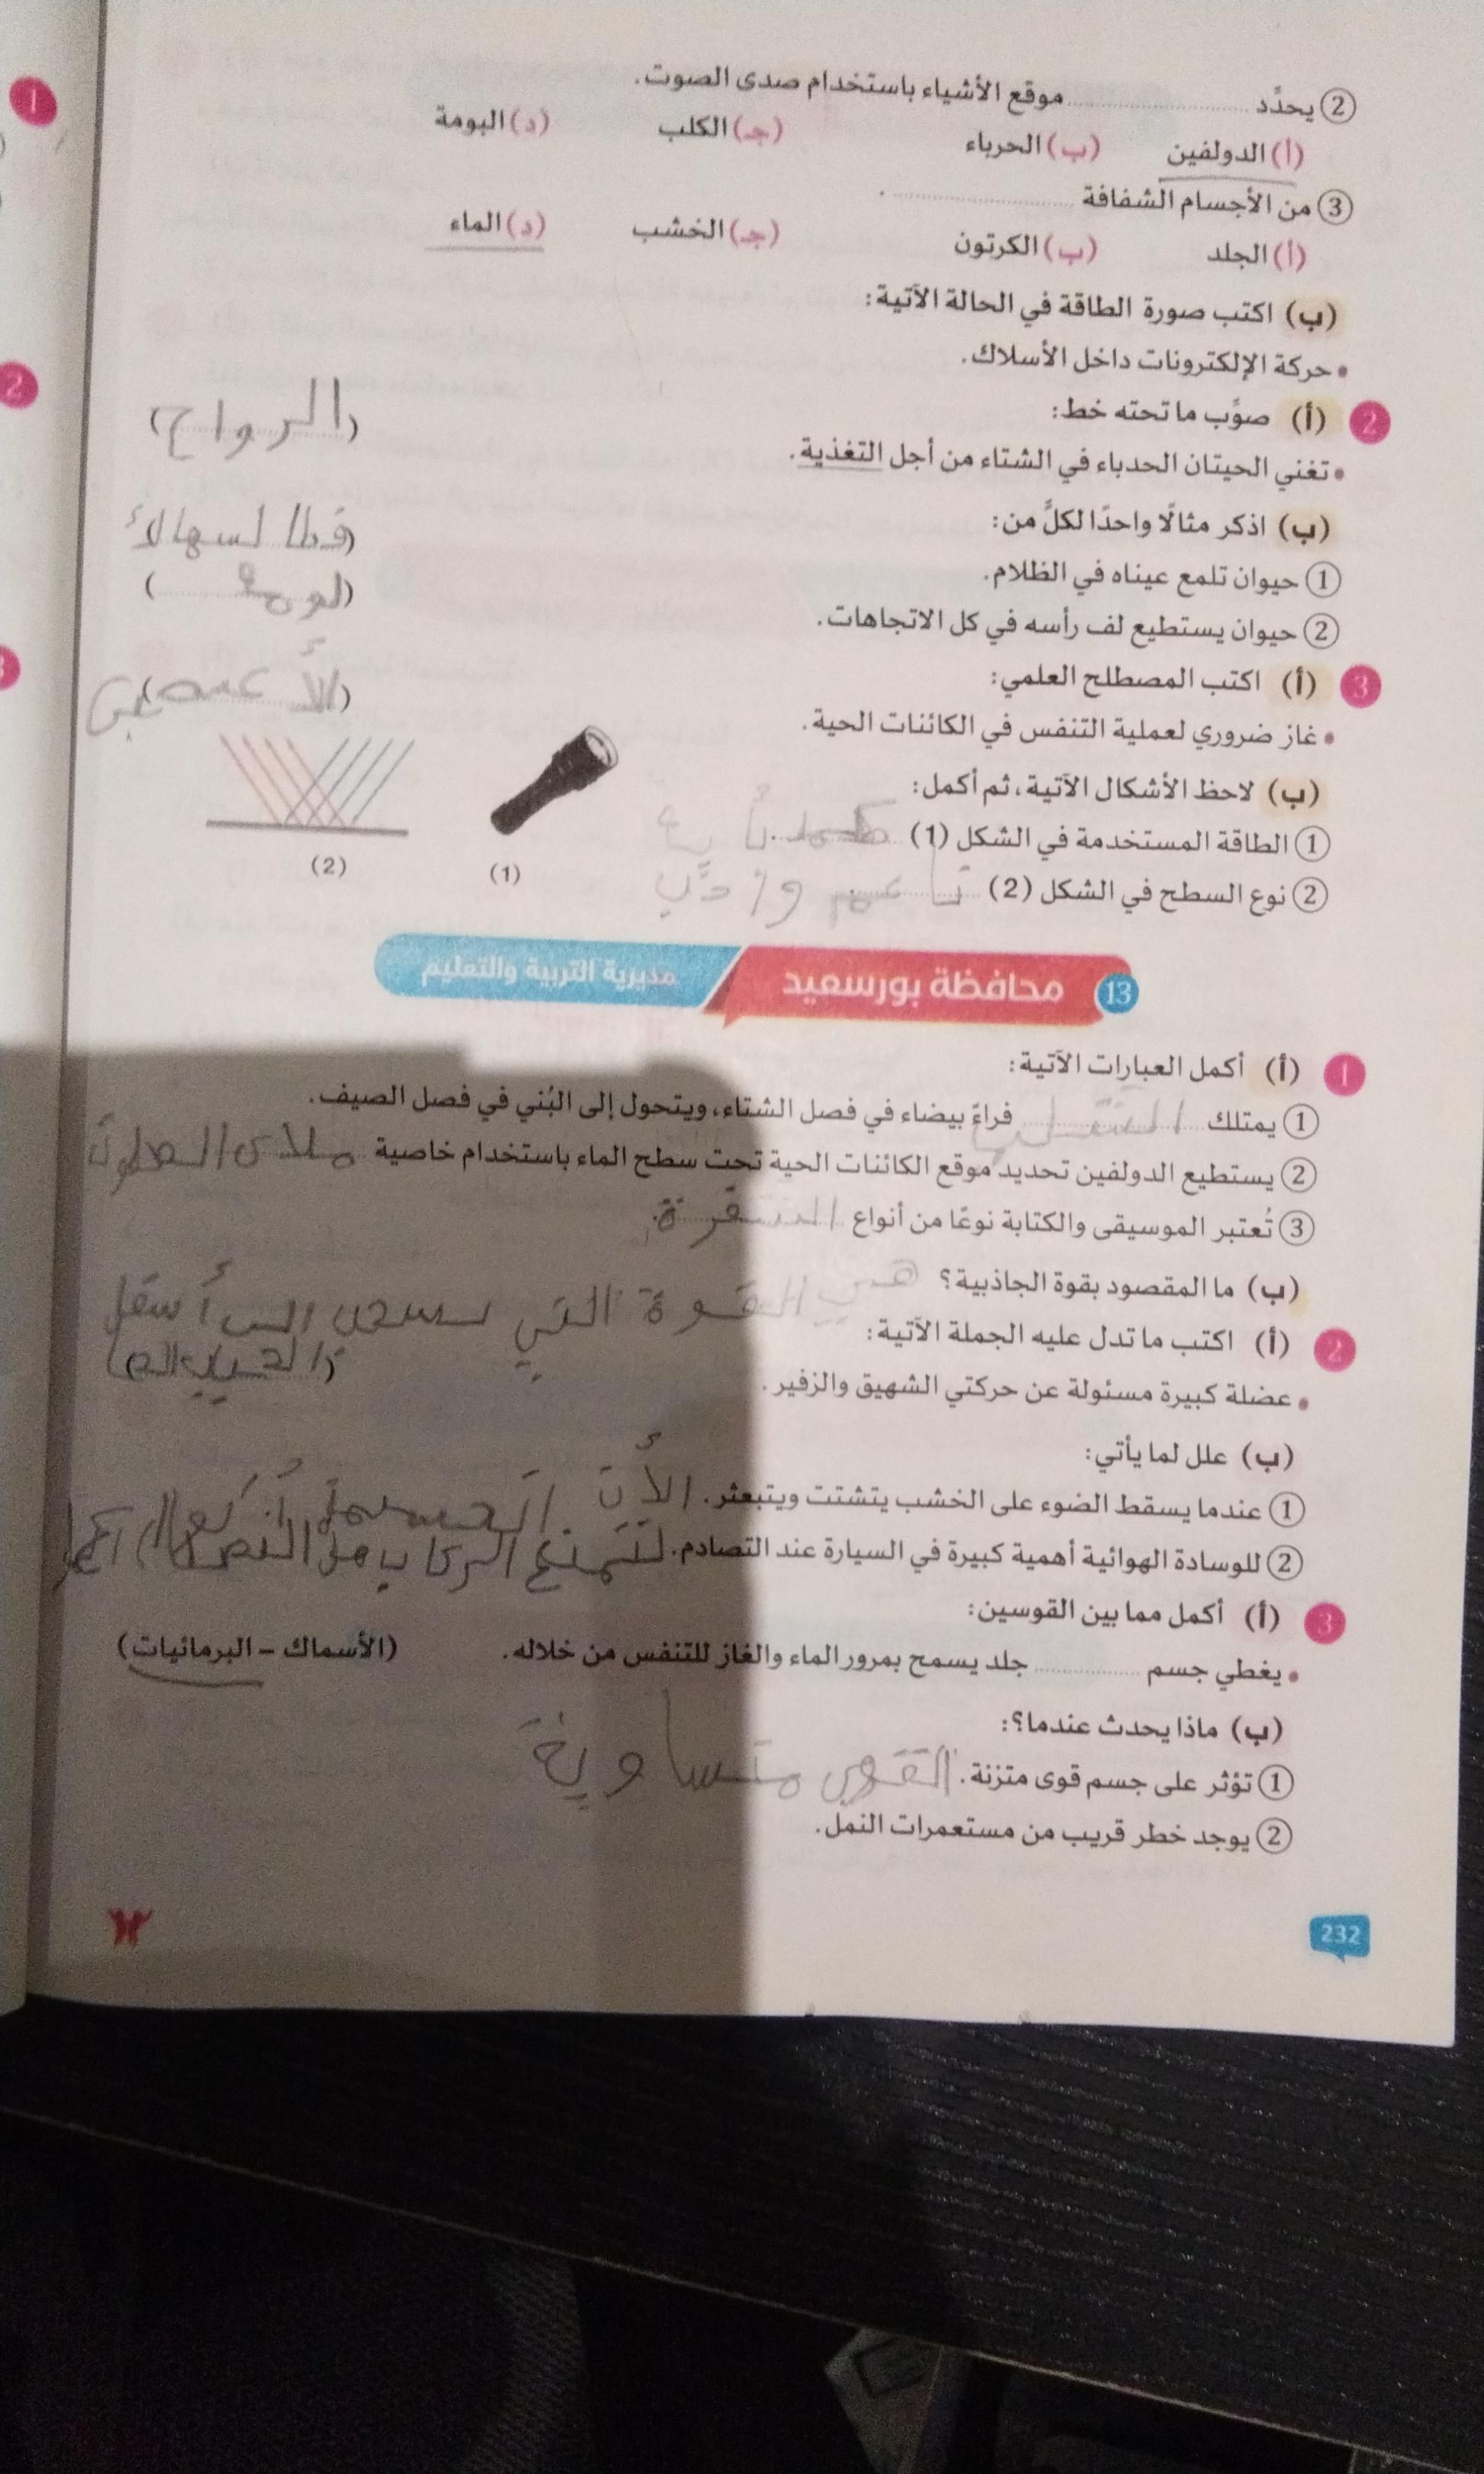 ② يحدِّد ............ موقع الأشياء باستخدام صدى الصوت.
(أ) الدولفين (ب) الحرباء (جـ) الكلب (د) البومة
③ من الأجسام الشفافة ............ .
(أ) الجلد (ب) الكرتون (جـ) الخشب (د) الماء
(ب) اكتب صورة الطاقة في الحالة الآتية:
• حركة الإلكترونات داخل الأسلاك.
2 (أ) صوِّب ما تحته خط:
• تغني الحيتان الحدباء في الشتاء من أجل التغذية. (الرواح)
(ب) اذكر مثالًا واحدًا لكلٍّ من:
① حيوان تلمع عيناه في الظلام.
② حيوان يستطيع لف رأسه في كل الاتجاهات.
3 (أ) اكتب المصطلح العلمي:
• غاز ضروري لعملية التنفس في الكائنات الحية.
(ب) لاحظ الأشكال الآتية، ثم أكمل:
① الطاقة المستخدمة في الشكل (1)
② نوع السطح في الشكل (2)
(1) (2)
13 محافظة بورسعيد مديرية التربية والتعليم
1 (أ) أكمل العبارات الآتية:
① يمتلك الثعلب فراءً بيضاء في فصل الشتاء، ويتحول إلى البُني في فصل الصيف.
② يستطيع الدولفين تحديد موقع الكائنات الحية تحت سطح الماء باستخدام خاصية
③ تُعتبر الموسيقى والكتابة نوعًا من أنواع
(ب) ما المقصود بقوة الجاذبية؟ هي القوة التي أسفل
2 (أ) اكتب ما تدل عليه الجملة الآتية:
• عضلة كبيرة مسئولة عن حركتي الشهيق والزفير.
(ب) علل لما يأتي:
① عندما يسقط الضوء على الخشب يتشتت ويتبعثر.
② للوسادة الهوائية أهمية كبيرة في السيارة عند التصادم.
3 (أ) أكمل مما بين القوسين:
• يغطي جسم ............ جلد يسمح بمرور الماء والغاز للتنفس من خلاله. (الأسماك – البرمائيات)
(ب) ماذا يحدث عندما؟:
① تؤثر على جسم قوى متزنة. القوى متساوية
② يوجد خطر قريب من مستعمرات النمل.
232